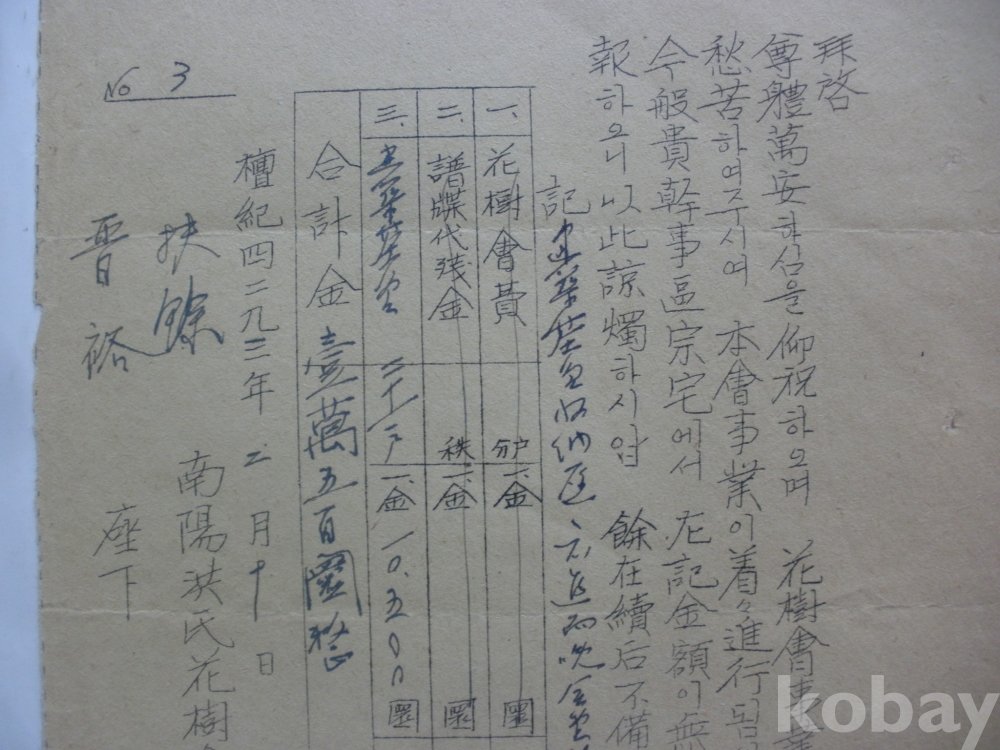 拜啓
尊體萬安하심을仰祝하오며 花樹會事業
愁苦하여주시여 本會事業이着々進行됨
今般貴幹事區宗宅에서 左記金額이無
報하오니以此諒燭하시압 餘在續后不備
記 建築基金收納
一、花樹會費 戶分 一金 圜
二、譜牒代残金 秩 一金 圜
三、建築基金 二十一戶 一金 一〇.五〇〇 圜
合計金壹萬五百圜整
檀紀四二九三年 二月十日
南陽洪氏花樹
扶餘
晋裕 座下
No 3
kobay